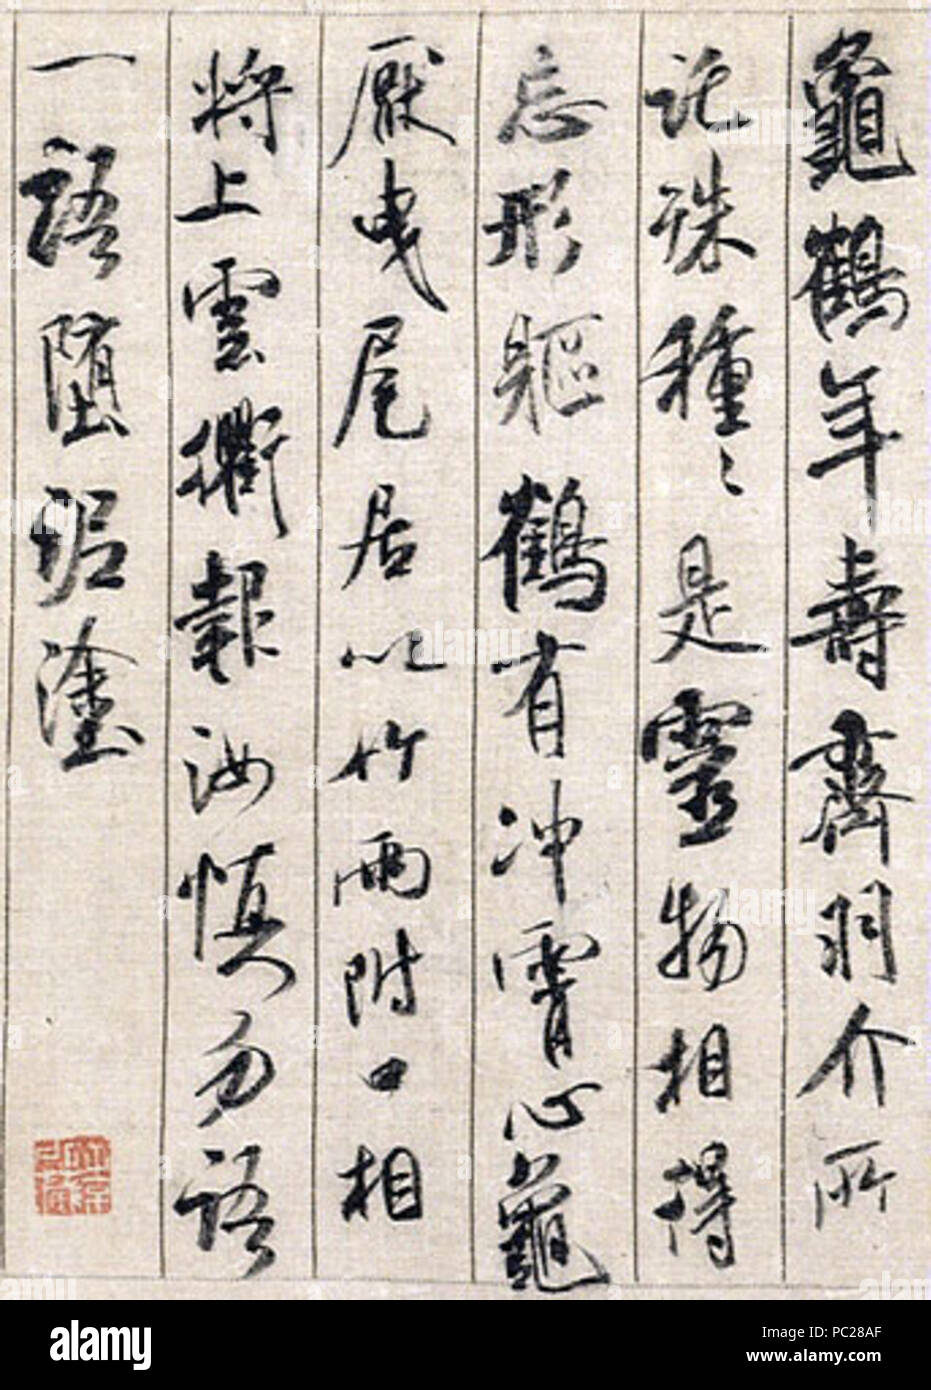 龜鶴年壽齊羽介所
託殊種〻是靈物相得
忘形軀鶴有冲霄心龜
厭曳尾居以竹兩附口相
將上雲衢報汝慎勿語
一語墮泥塗
alamy
PC28AF
www.alamy.com